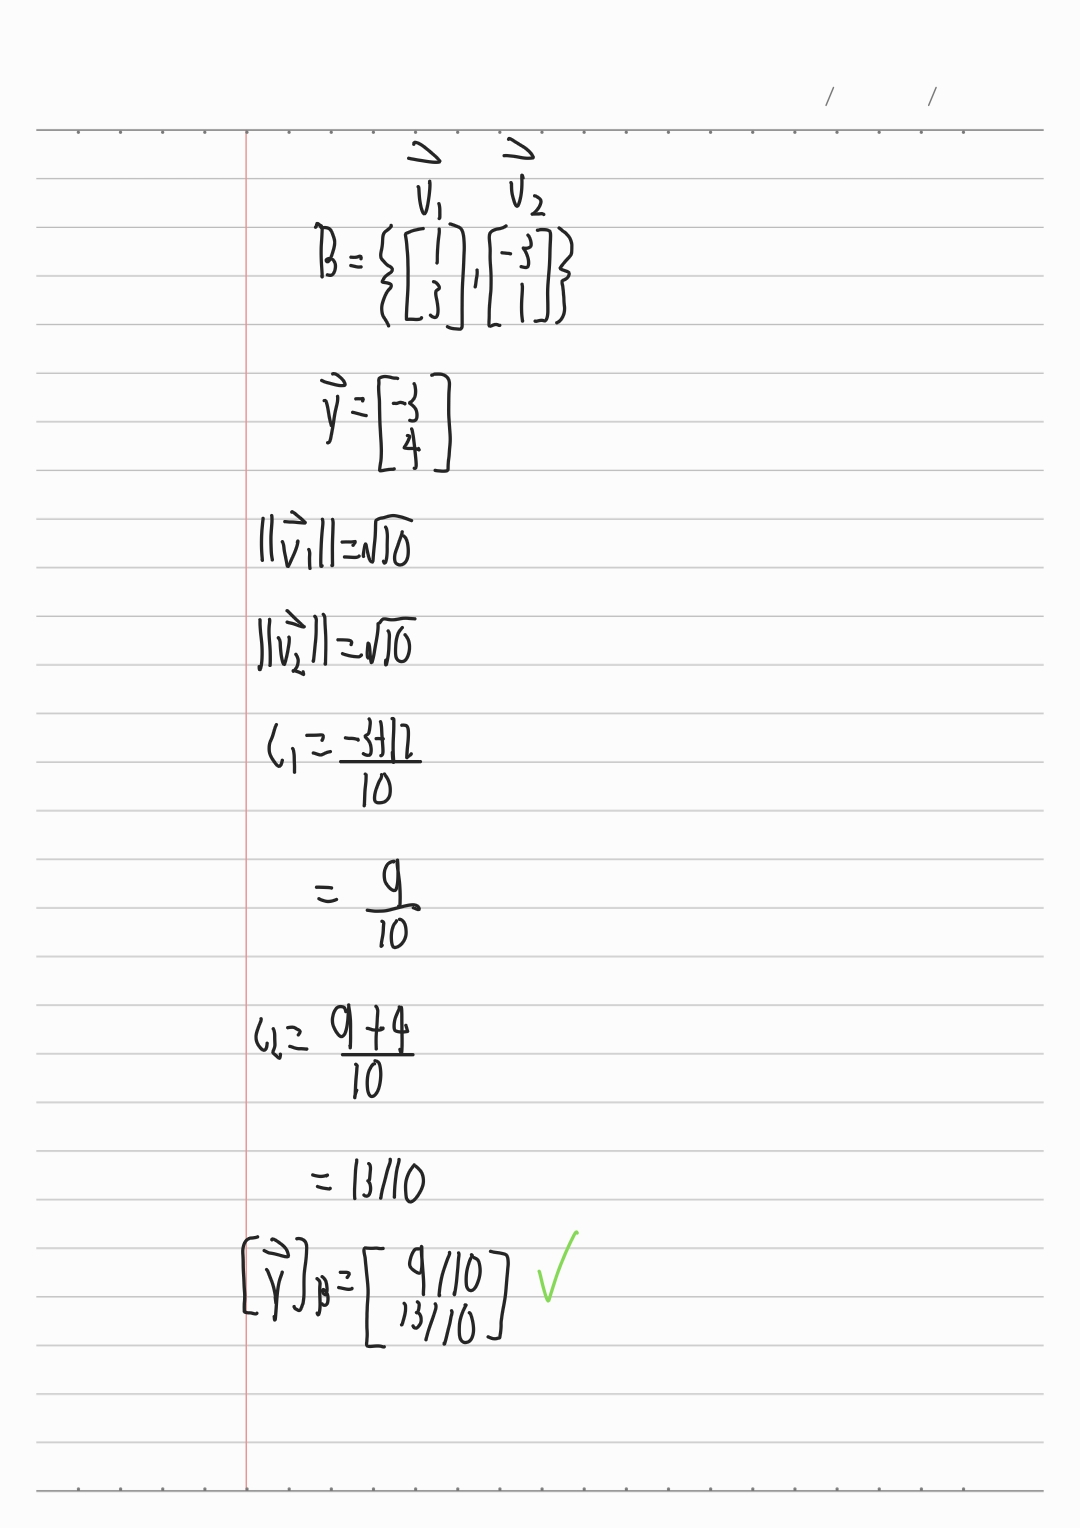 / /
v⃗₁ v⃗₂
B = {[1 3], [-3 1]}
y⃗ = [-3 4]
||v⃗₁|| = √10
||v⃗₂|| = √10
C₁ = (-3+12)/10
= 9/10
C₂ = (9+4)/10
= 13/10
[y⃗]_B = [9/10 13/10] ✓